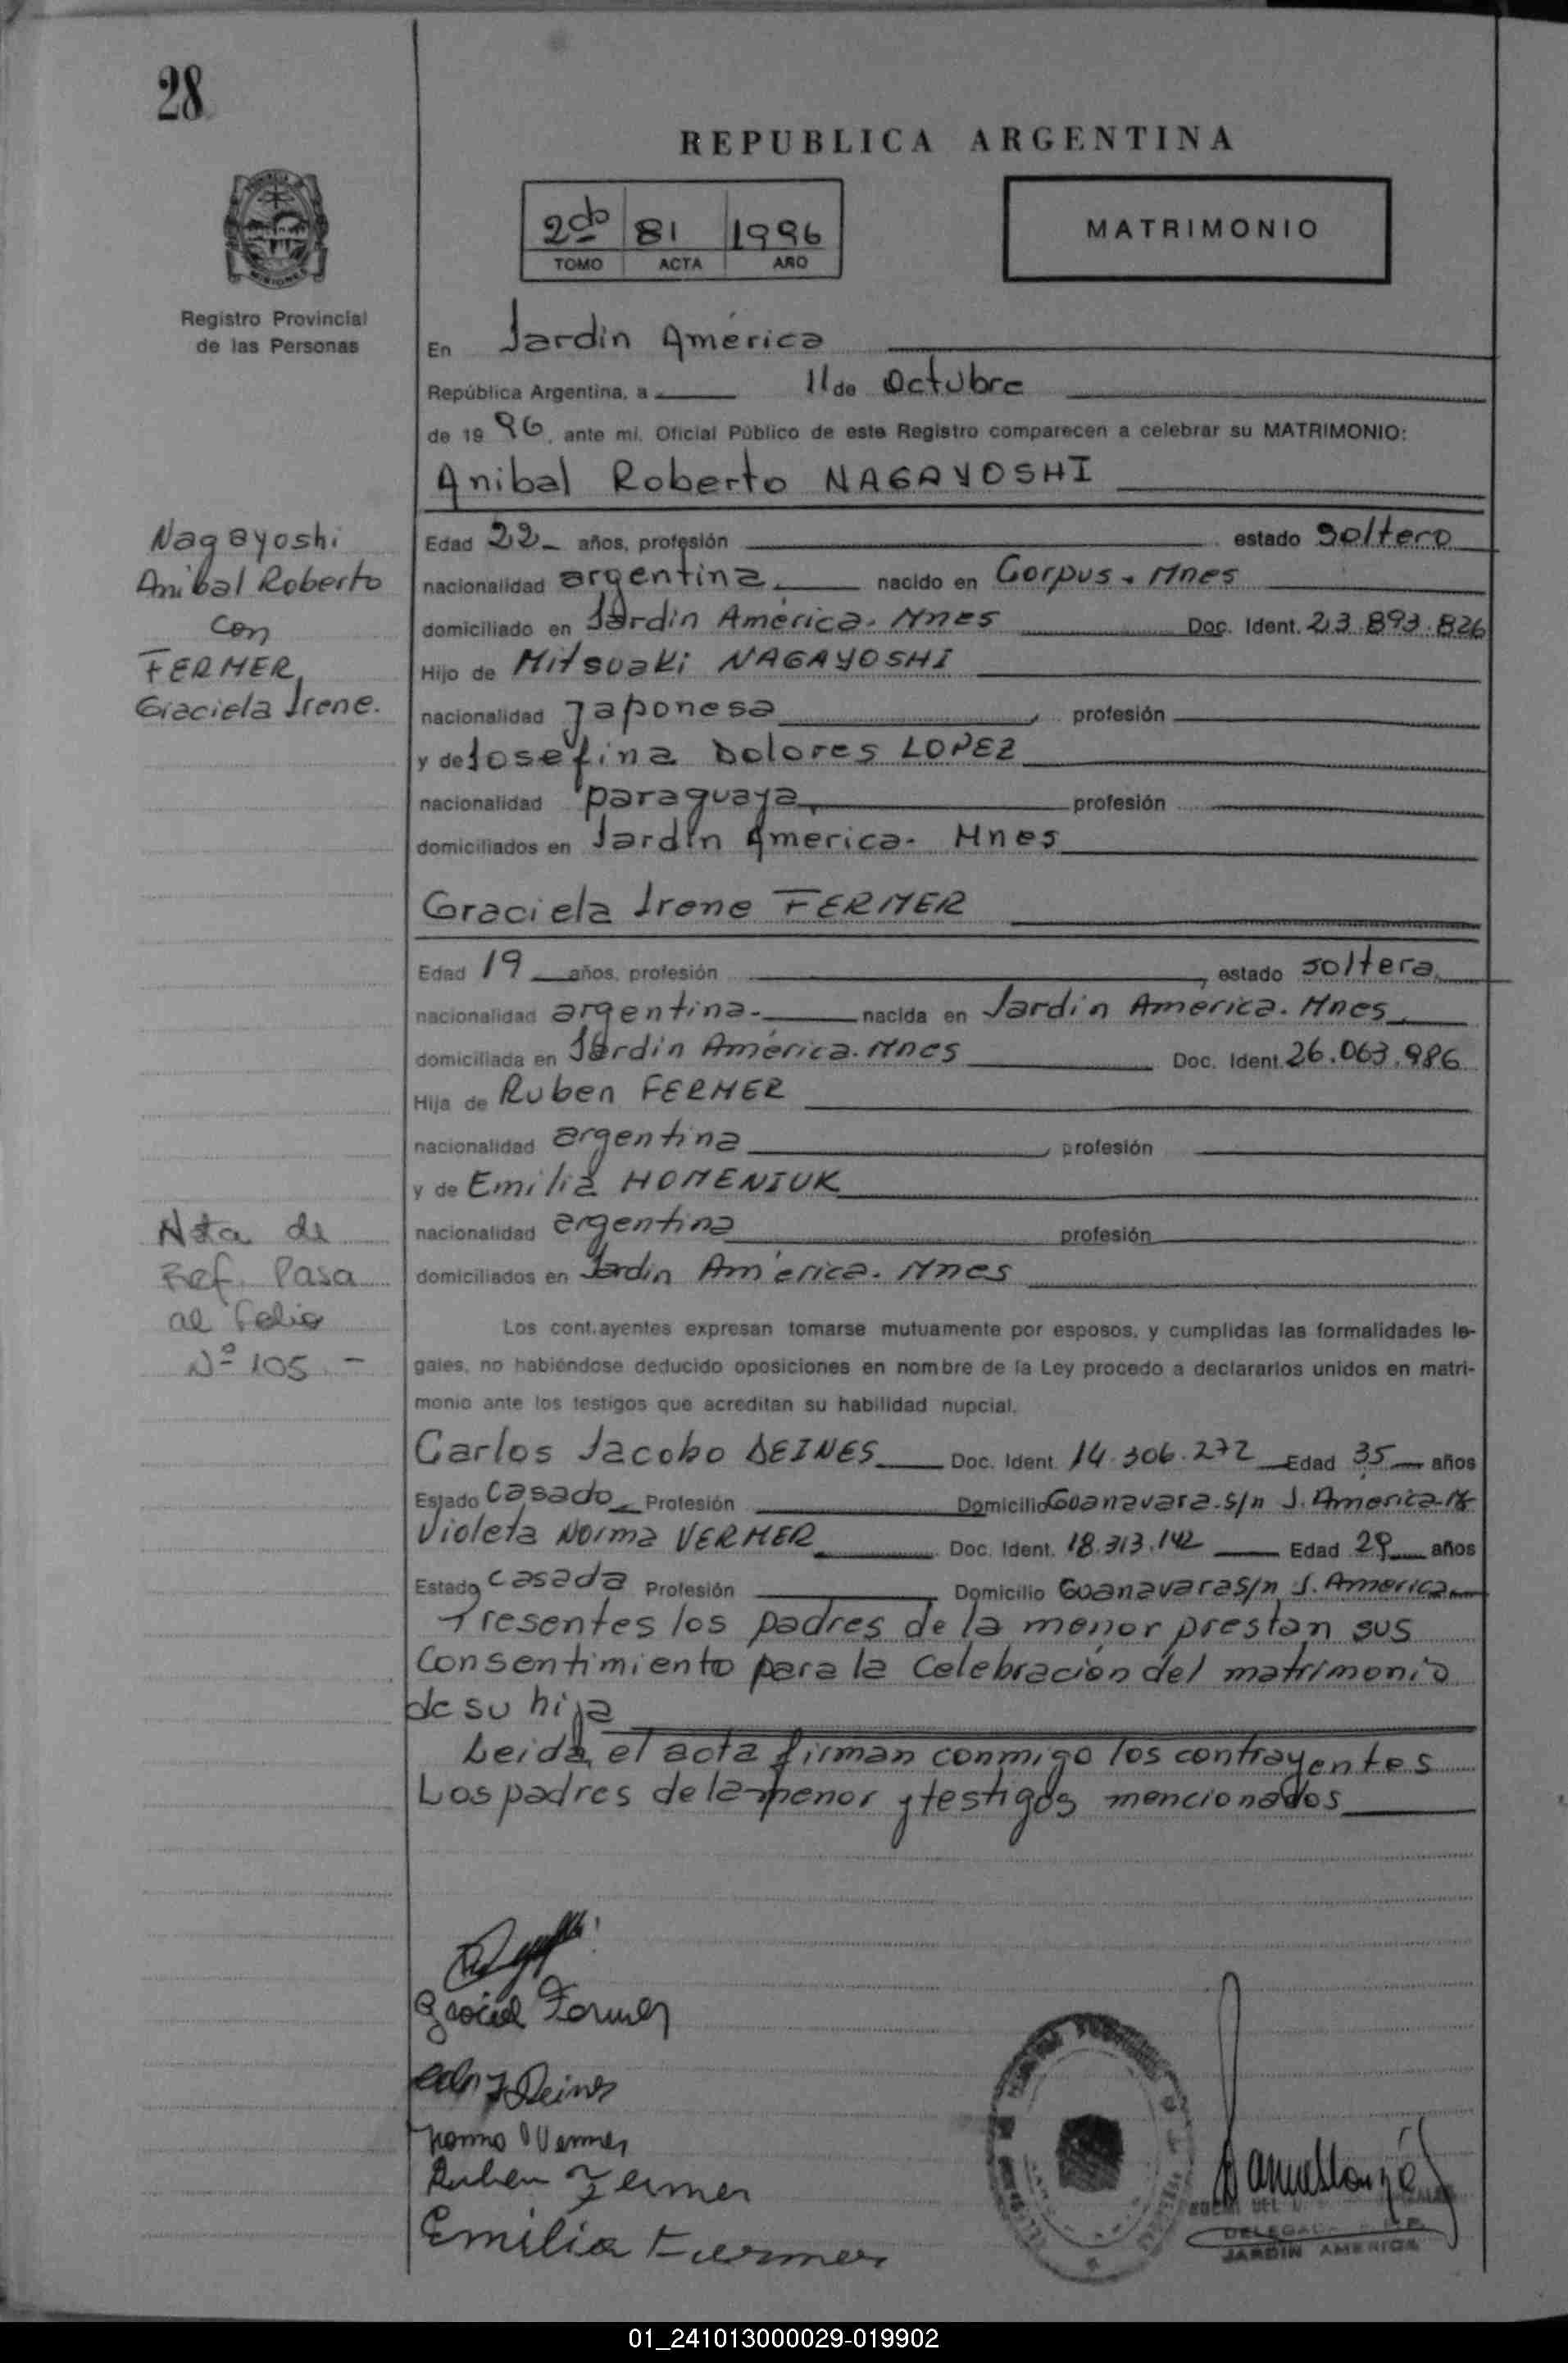 28
REPUBLICA ARGENTINA
2do 81 1996
TOMO ACTA AÑO
MATRIMONIO
MISIONES
Registro Provincial
de las Personas
En Jardín América
República Argentina, a 11 de Octubre
de 19 96, ante mi, Oficial Público de este Registro comparecen a celebrar su MATRIMONIO:
Anibal Roberto NAGAYOSHI
Nagayoshi
Anibal Roberto
con
FERMER
Graciela Irene.
Edad 22 años, profesión estado Soltero
nacionalidad argentina nacido en Corpus - Mnes
domiciliado en Jardín América - Mnes Doc. Ident. 23.893.826
Hijo de Mitsuaki NAGAYOSHI
nacionalidad Japonesa, profesión
y de Josefina Dolores LOPEZ
nacionalidad paraguaya, profesión
domiciliados en Jardín America - Mnes
Graciela Irene FERMER
Edad 19 años, profesión, estado soltera
nacionalidad argentina.- nacida en Jardín America. Mnes
domiciliada en Jardín América. Mnes Doc. Ident. 26.063.986
Hija de Ruben FERMER
nacionalidad argentina, profesión
y de Emilia HOMENIUK
nacionalidad argentina profesión
domiciliados en Jardín América. Mnes
Nota de
Ref. Pasa
al Folio
Nº 105.-
Los contrayentes expresan tomarse mutuamente por esposos, y cumplidas las formalidades le-
gales, no habiéndose deducido oposiciones en nombre de la Ley procedo a declararlos unidos en matri-
monio ante los testigos que acreditan su habilidad nupcial.
Carlos Jacobo DEINES Doc. Ident. 14.306.272 Edad 35 años
Estado Casado Profesión Domicilio Guanavara s/n J. America
Violeta Norma VERMER Doc. Ident. 18.313.142 Edad 29 años
Estado Casada Profesión Domicilio Guanavara s/n J. America
Presentes los padres de la menor prestan sus
Consentimiento para la Celebración del matrimonio
de su hija
Leida el acta firman conmigo los contrayentes
Los padres de la menor y testigos mencionados
Ruben Fermer
Emilia Fermer
JARDIN AMERICA
01_241013000029-019902